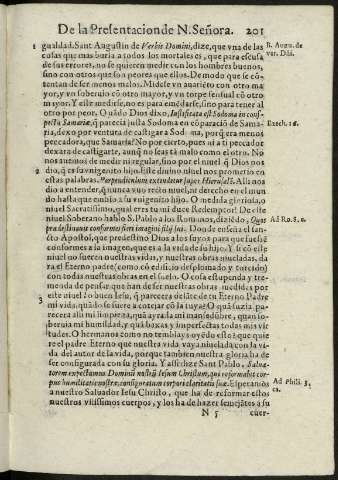 De la Presentacion de N. Señora. 201
1 gualdad. Sant Augustin de Verbis Domini, dize, que vna de las
cosas que mas burla a todos los mortales es, que para escusa
de sus errores, no se quieren medir con los hombres buenos,
sino con otros que son peores que ellos. De modo que se cō
tentan de ser menos malos. Midese vn auariēto con otro ma
yor, y vn soberuio cō otro mayor, y vn torpe sensual cō otro
mayor. Y este medirse, no es para emēdarse, sino para tener al
otro por peor. Quādo Dios dixo, Iustificata est Sodoma in cons-
pectu Samariæ, q̄ parecia justa Sodoma en cōparaciō de Sama-
ria, dexo por ventura de castigar a Sodoma, porq̄ era menos
pecadora, que Samaria? No por cierto, pues ni a ti pecador
dexara de castigarte, aunq̄ no seas tā malo como el otro. No
nos auemos de medir ni regular, sino por el niuel q̄ Dios nos
dio, q̄ es su vnigenito hijo. Este diuino niuel nos prometio en
2 estas palabras. Perpendiculum extendetur super Hierusalē. Alli nos
dio a entender, q̄ nunca vuo recto niuel, ni derecho en el mun
do hasta que embio a su vnigenito hijo. O medida gloriosa, o
niuel Sanctissimo, qual eres tu mi dulce Redemptor! De este
niuel Soberano hablo S. Pablo a los Romanos, diziēdo, Quos
prædestinauit conformes fieri imagini filij sui. Donde enseña el san-
cto Apostol, que predestino Dios a los suyos para que fuessē
conformes a la imagen, que es a la vida de su hijo. Y si cō este
niuel no fueren nuestras vidas, y nuestras obras niueladas, da
ra el Eterno padre (como ōd edificio desplomado y torcido)
con todas nuestras obras en el suelo. O cosa estupenda y tre-
menda de pensar, que han de ser nuestras obras medidas por
este niuel ō buen Iesus, q̄ parecera delāte de tu Eterno Padre
3 mi vida, quādo se fuere a cotejar cō la tuya? O quā suzia pa-
recera alli mi limpieza, quā ayrada mi mansedūbre, quan so-
beruia mi humildad, y quā baxas y imperfectas todas mis vir
tudes. O hermanos como no temblays oyēdo esto? que quie
re el padre Eterno que nuestra vida vaya niuelada con la vi-
da del autor de la vida, porque tambien nuestra gloria ha de
ser configurada con su gloria. Y assi dize Sant Pablo, Salua-
torem expectamus Dominū nostrū Iesum Christum, qui reformabit cor-
pus humilitatis nostræ, configuratum corpori claritatis suæ. Esperamos
a nuestro Saluador Iesu Christo, que ha de reformar estos
nuestros vilissimos cuerpos, y los ha de hazer semejātes a su
N 5 cuer-
B. Augu. de
ver. Dñi.
Ezech. 16.
Ad Ro. 8. c.
Ad Phili. 3.
ca.